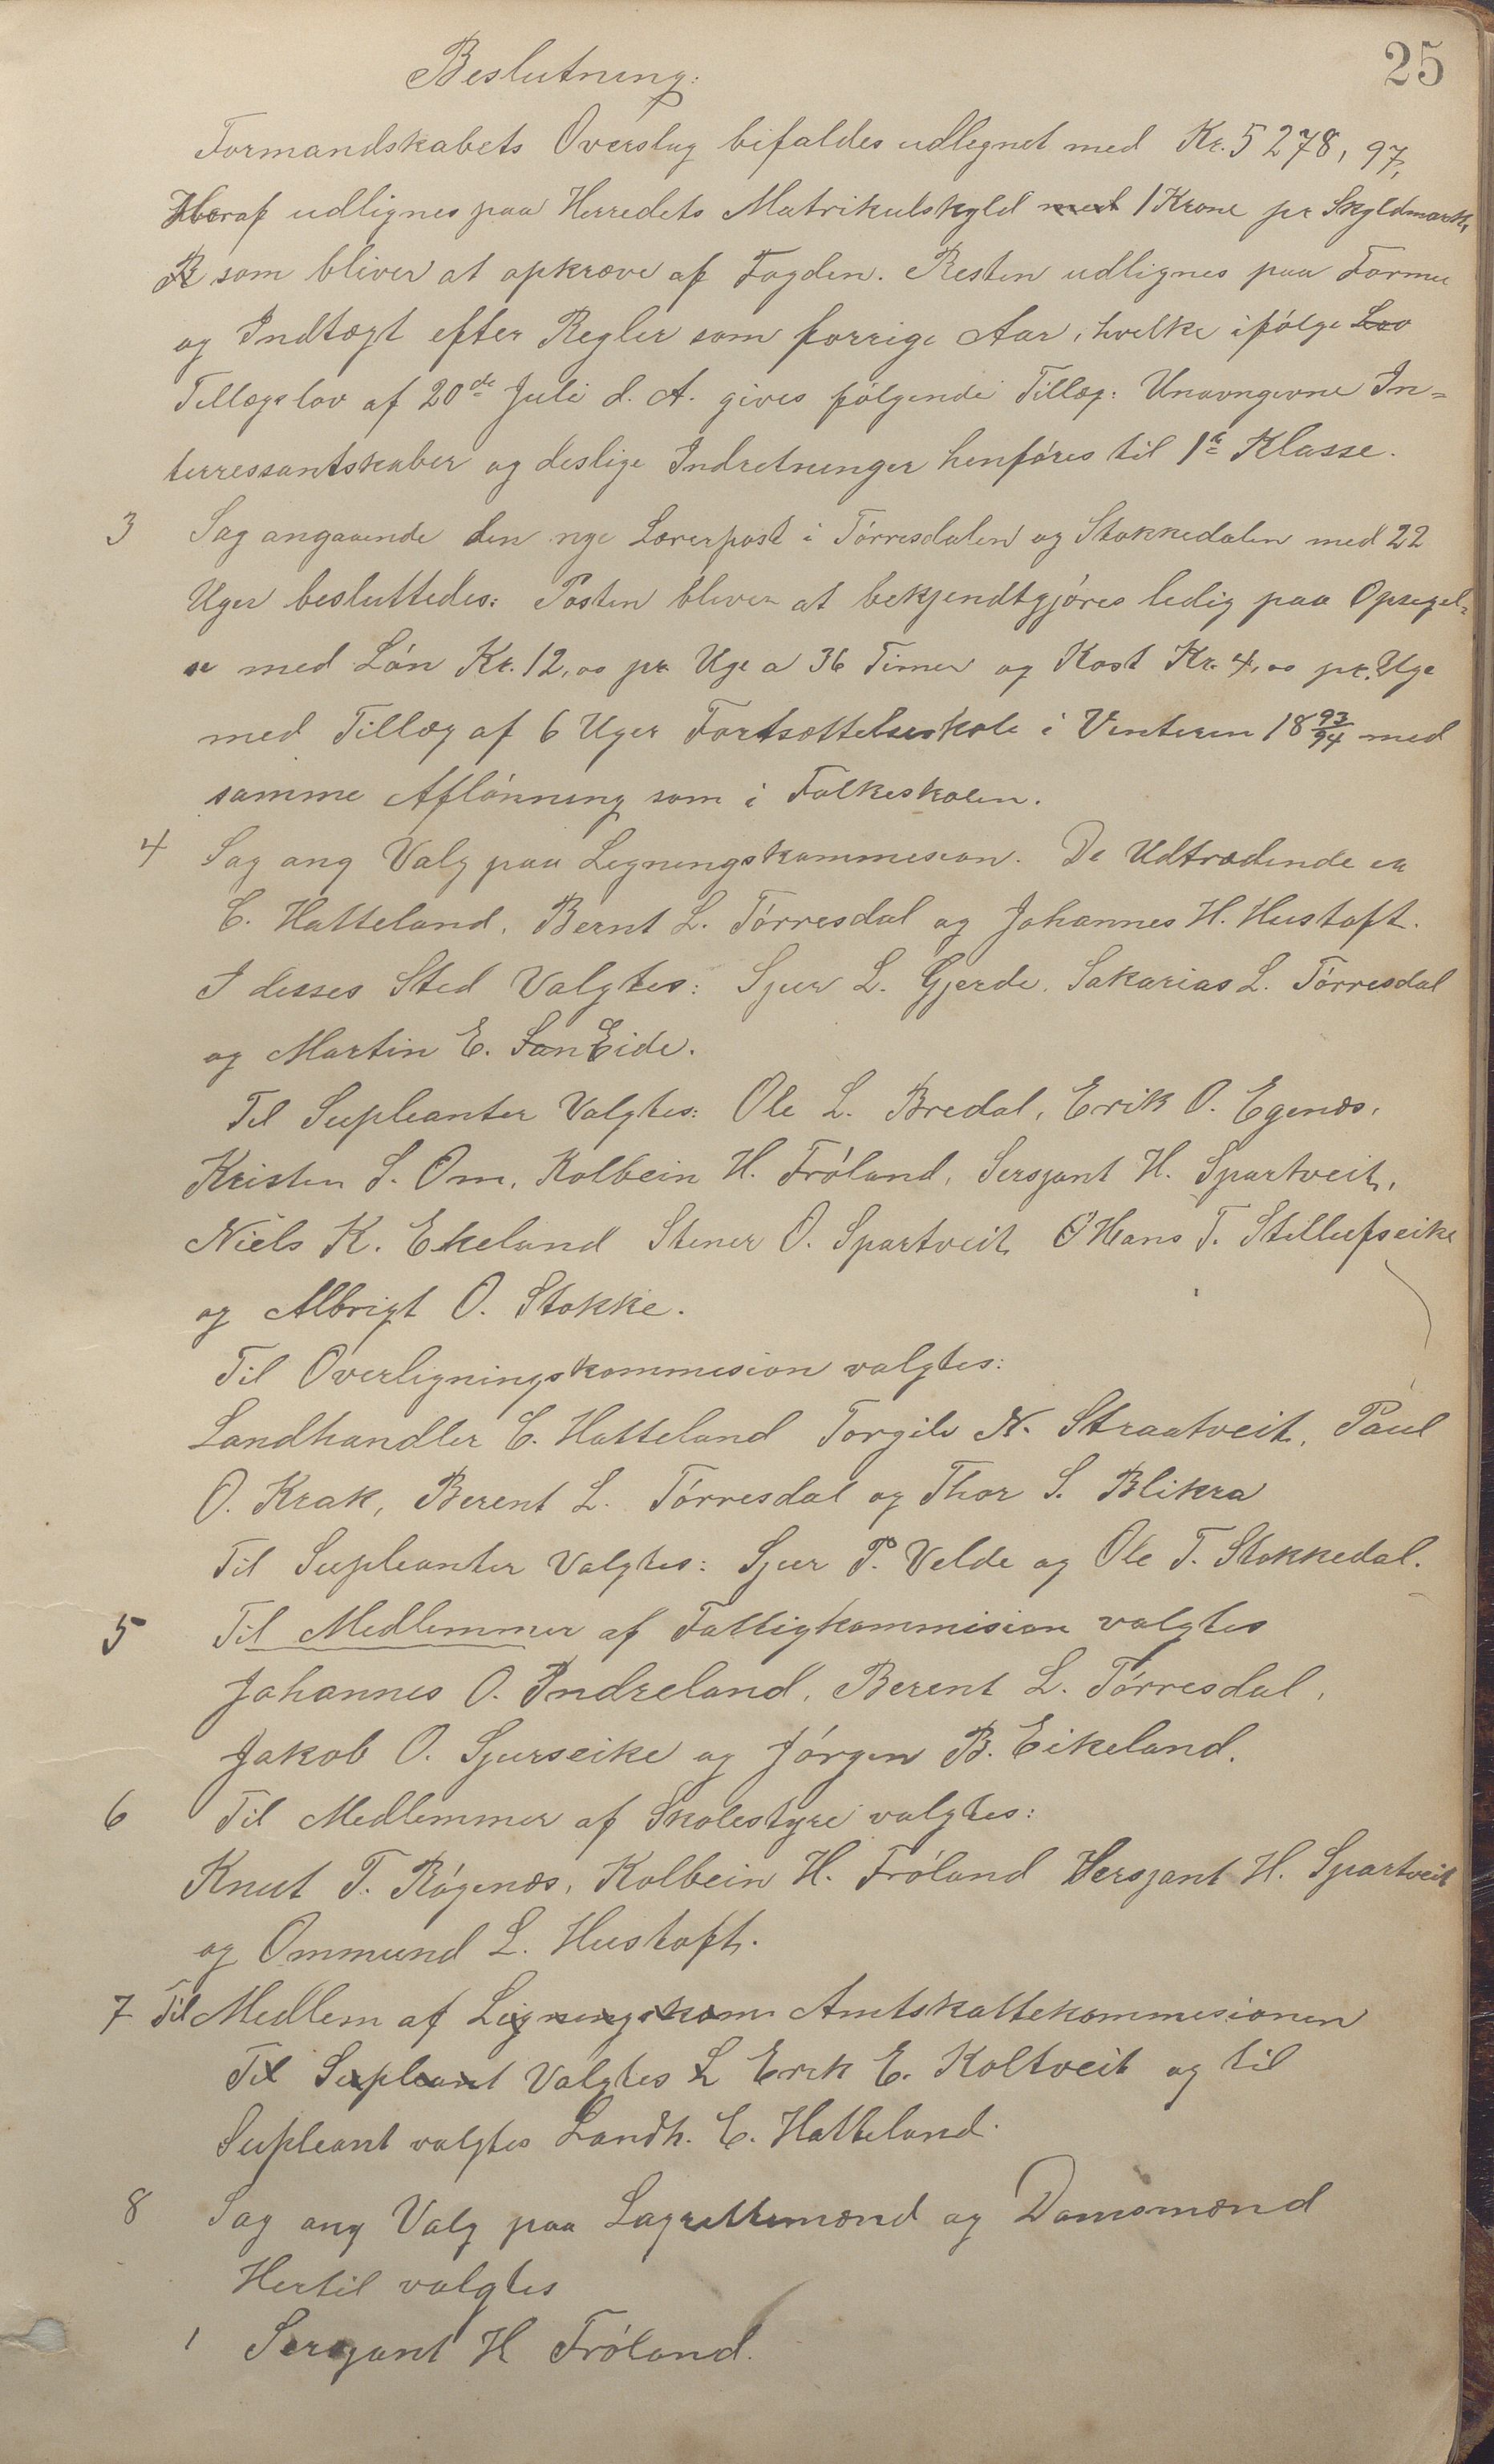 25
Beslutning:
Formandskabets Overslag bifaldes udlignet med Kr. 5278,97,
Heraf udlignes paa Herredets Matrikulskyld med 1 Krone pr Skyldmark,
R som bliver at opkræve af Fogden. Resten udlignes paa Formue
og Indtægt efter Regler som forrige Aar, hvilke ifølge Lov
Tillægslov af 20de Juli d. A. gives følgende Tillæg: Unavngivne In=
terressantskaber og deslige Indretninger henføres til 1e Klasse.
3 Sag angaaende den nye Lærerpost i Tørresdalen og Stokkedalen med 22
Uger besluttedes: Posten bliver at bekjendtgjøres ledig paa Opsigel=
se med Løn Kr. 12,00 pr. Uge a 36 Timer og Kost Kr. 4,00 pr. Uge
med Tillæg af 6 Uger Fortsættelseskole i Vinteren 18 93/94 med
samme Aflønning som i Folkeskolen.
4 Sag ang Valg paa Ligningskommesion. De Udtrædende er
C. Hatteland, Bernt L. Tørresdal og Johannes H. Hustoft.
I desses Sted Valgtes: Sjur L. Gjerde, Sakarias L. Tørresdal
og Martin E. San Eide.
Til Supleanter Valgtes: Ole L. Bredal, Erik O. Egenæs,
Kristen S. Om, Kolbein H. Frøland, Sersjant H. Spartveit,
Niels K. Ekeland Stener O. Spartveit, O Hans T. Stellufseike
og Albrigt O. Stokke.
Til Overligningskommesion valgtes:
Landhandler C. Hatteland Torgils N. Straatveit, Paul
O. Krak, Berent L. Tørresdal og Thor S. Blikra
Til Supleanter Valgtes: Sjur P. Velde og Ole T. Stokkedal.
5 Til Medlemmer af Fattigkommision valgtes
Johannes O. Indreland, Berent L. Tørresdal,
Jakob O. Sjurseike og Jørgen B. Eikeland.
6 Til Medlemmer af Skolestyre valgtes:
Knut T. Røgenæs, Kolbein H. Frøland Sersjant H. Spartveit
og Ommund L. Hustoft.
7 Til Medlem af Ligningskom Amtskattekommesionen
Til Supleant Valgtes L Erik E. Koltveit og til
Supleant valgtes Landh. C. Hatteland.
8 Sag ang Valg paa Lagrettemænd og Domsmænd
Hertil valgtes
1 Sersjant H Frøland.